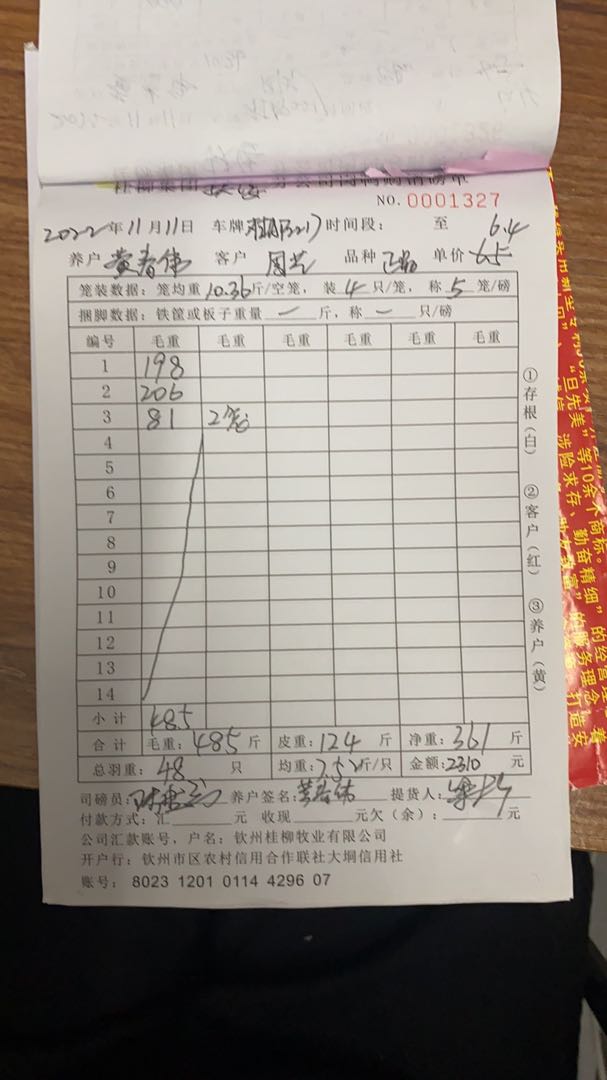 NO. 0001327
2022年11月11日 车牌 时间段: 至
6.4
养户 黄春伟 客户 周兰 品种 正品 单价 6.5
笼装数据: 笼均重10.36斤/空笼, 装4只/笼, 称5笼/磅
捆脚数据: 铁筐或板子重量 一 斤, 称 一 只/磅
编号 毛重 毛重 毛重 毛重 毛重 毛重
1 198
2 206
3 81 2笼
4
5
6
7
8
9
10
11
12
13
14
小计 485
合计 毛重: 485斤 皮重: 124斤 净重: 361斤
总羽重: 48只 均重: 7.52斤/只 金额: 2310元
司磅员: 养户签名: 黄春伟 提货人:
付款方式: 汇 元 收现 元欠(余): 元
公司汇款账号, 户名: 钦州桂柳牧业有限公司
开户行: 钦州市区农村信用合作联社大垌信用社
账号: 8023 1201 0114 4296 07
①存根(白)
②客户(红)
③养户(黄)
“旦先美”等10余个商标。
涉险求存、勤奋精细”的经营
的服务理念,打造安